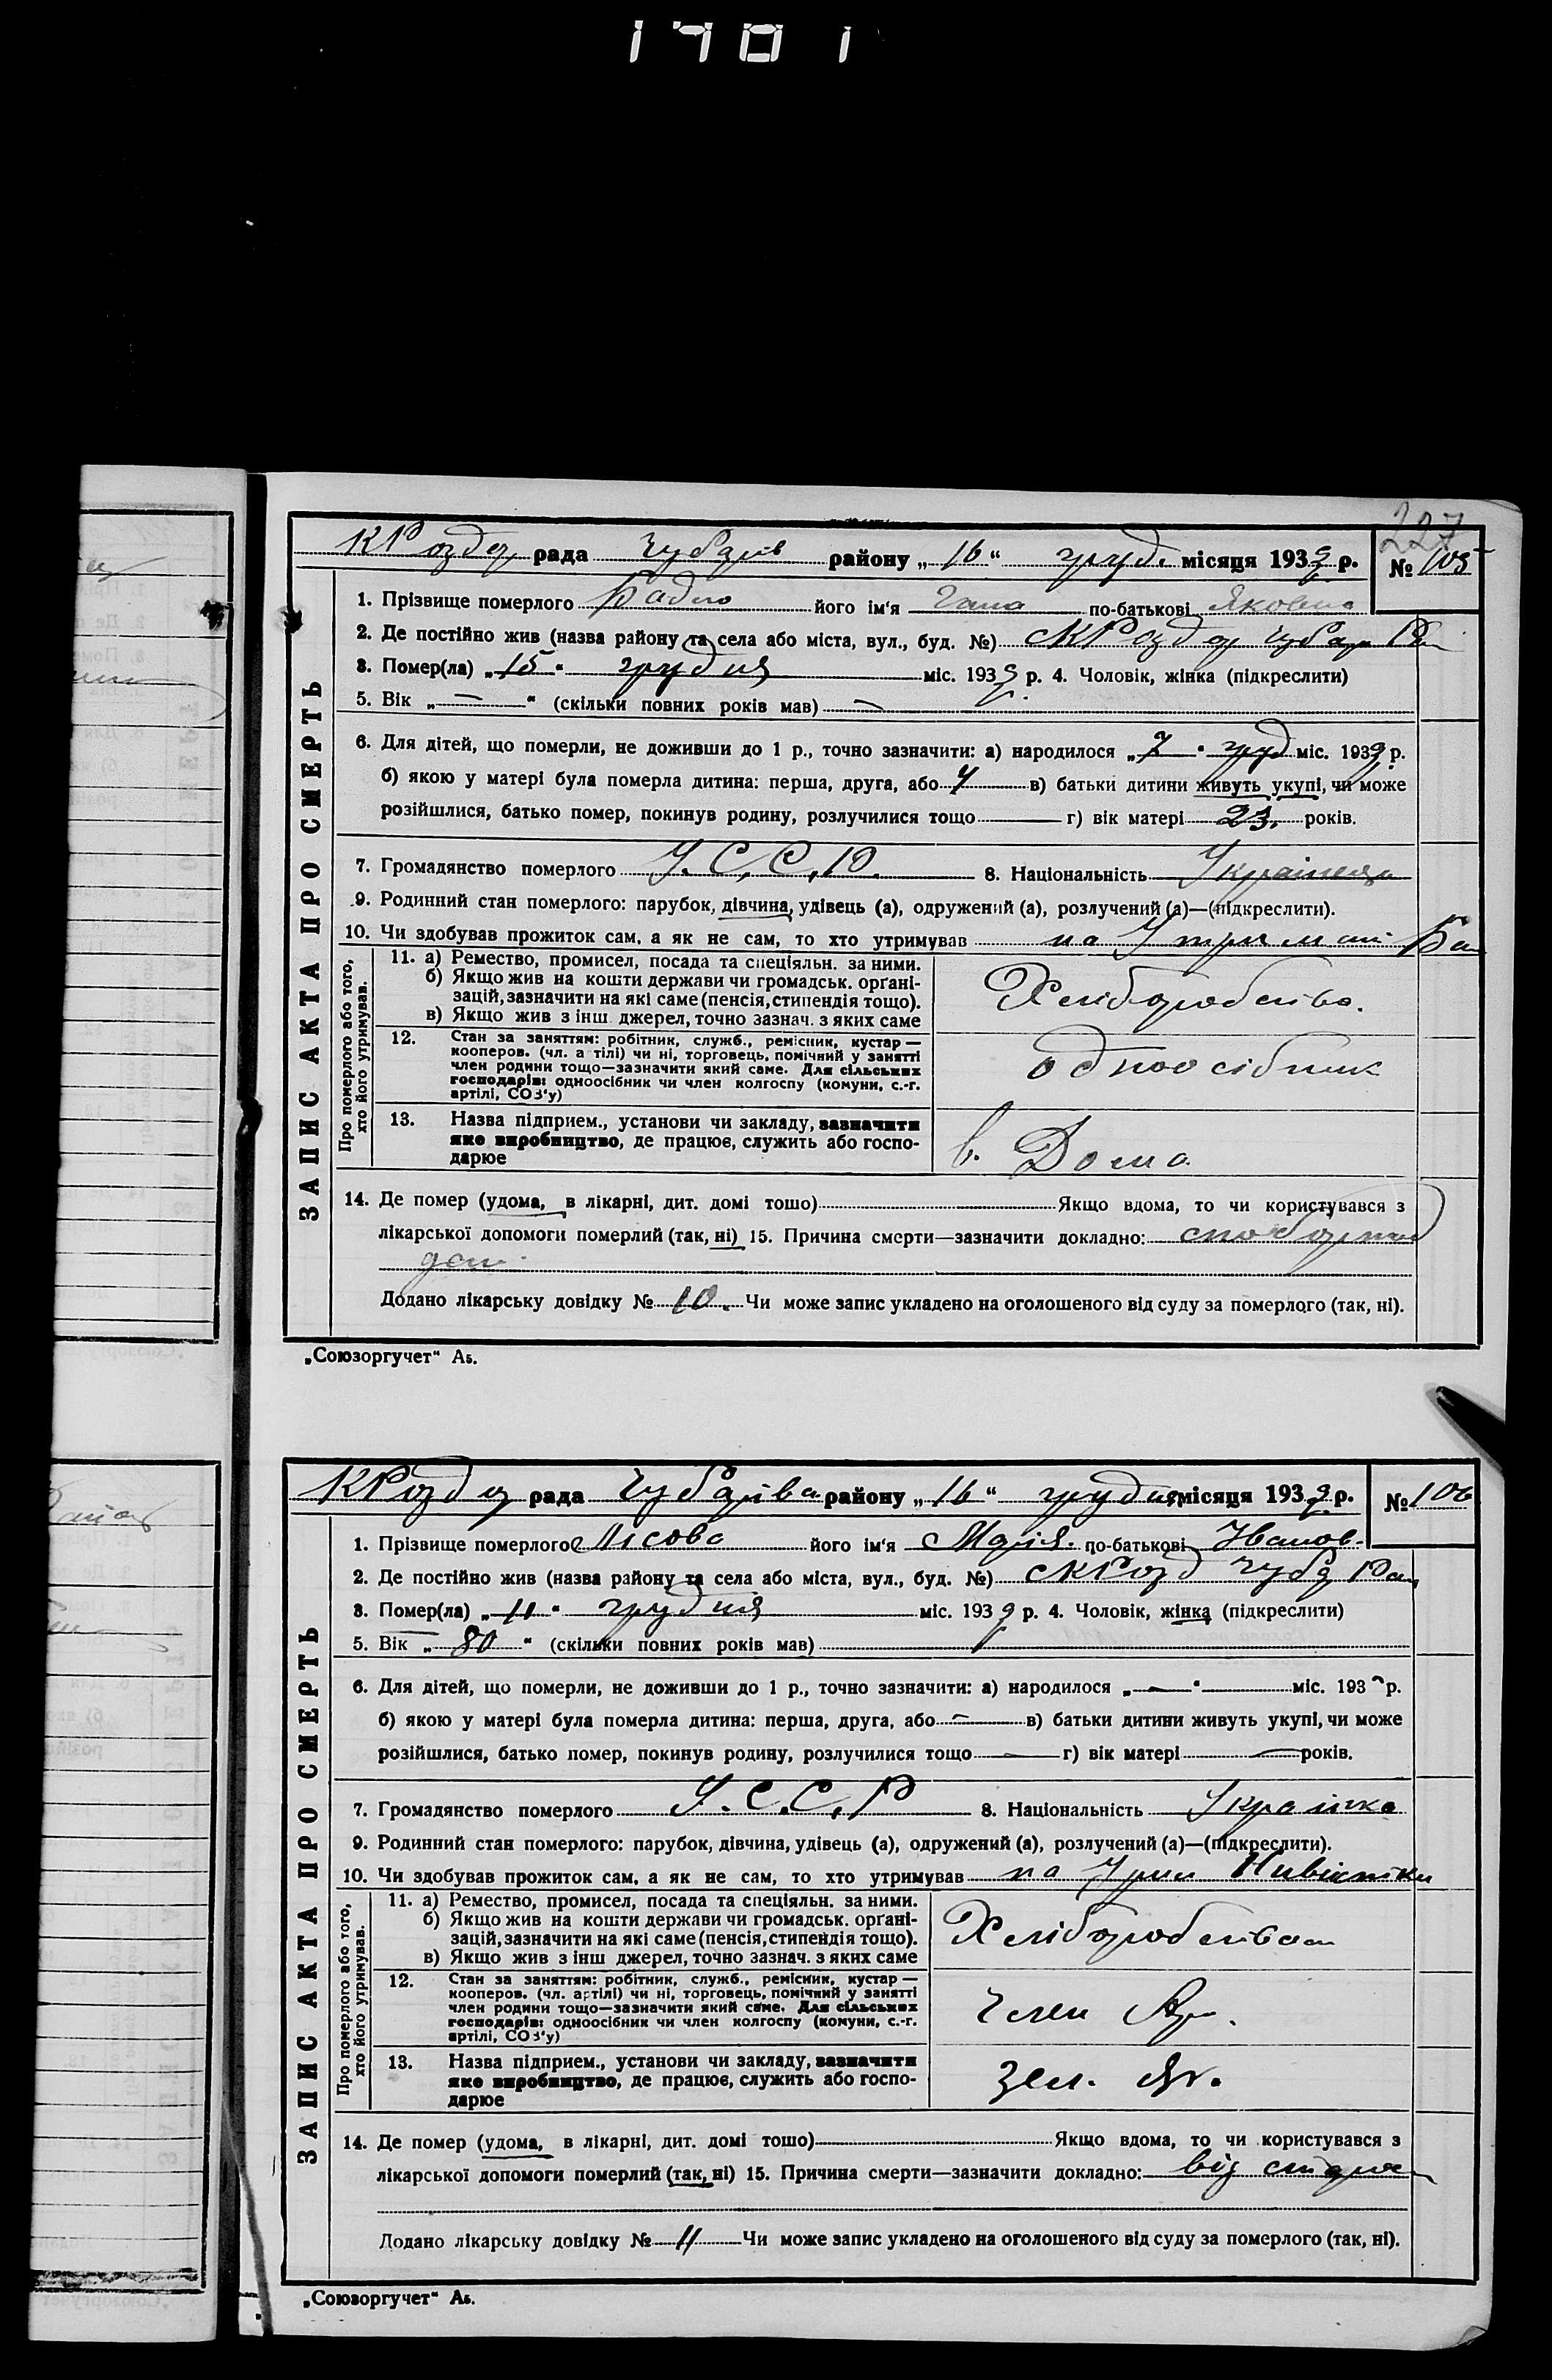 1701
227
КРоздор рада Чубарів району „16“ груд. місяця 1932 р. № 105
1. Прізвище померлого Бабло його ім'я Гана по-батькові Яковна
2. Де постійно жив (назва району та села або міста, вул., буд. №) с КРоздор Чубар Ра
3. Помер(ла) „15“ грудня міс. 1932 р. 4. Чоловік, жінка (підкреслити)
5. Вік „—“ (скільки повних років мав) —
6. Для дітей, що померли, не доживши до 1 р., точно зазначити: а) народилося „7“ груд міс. 1932 р.
б) якою у матері була померла дитина: перша, друга, або 4 в) батьки дитини живуть укупі, чи може
розійшлися, батько помер, покинув родину, розлучилися тощо — г) вік матері 23. років.
7. Громадянство померлого У.С.С.Р. 8. Національність
9. Родинний стан померлого: парубок, дівчина, удівець (а), одружений (а), розлучений (а)—(підкреслити).
10. Чи здобував прожиток сам, а як не сам, то хто утримував на Утримані
ЗАПИС АКТА ПРО СМЕРТЬ
Про померлого або того, хто його утримував.
11. а) Ремество, промисел, посада та спеціяльн. за ними.
б) Якщо жив на кошти держави чи громадськ. органі-
зацій, зазначити на які саме (пенсія, стипендія тощо).
в) Якщо жив з інш джерел, точно зазнач. з яких саме
Хліборобство.
12. Стан за заняттям: робітник, служб., ремісник, кустар—
кооперов. (чл. а тілі) чи ні, торговець, помічний у занятті
член родини тощо—зазначити який саме. Для сільських
господарів: одноосібник чи член колгоспу (комуни, с.-г.
артілі, СОЗ'у)
одноосібник
13. Назва підприєм., установи чи закладу, зазначити
яке виробництво, де працює, служить або госпо-
дарює
в. Дома
14. Де помер (удома, в лікарні, дит. домі тошо) Якщо вдома, то чи користувався з
лікарської допомоги померлий (так, ні) 15. Причина смерти—зазначити докладно:
Додано лікарську довідку № 10. Чи може запис укладено на оголошеного від суду за померлого (так, ні).
„Союзоргучет“ А₅.
КРоздор рада Чубарівс району „16“ грудня місяця 1932 р. № 106
1. Прізвище померлого Лісова його ім'я Марія. по-батькові Іванов.
2. Де постійно жив (назва району та села або міста, вул., буд. №) с КРозд Чуба Рай
3. Помер(ла) „11“ грудня міс. 1932 р. 4. Чоловік, жінка (підкреслити)
5. Вік „80“ (скільки повних років мав)
6. Для дітей, що померли, не доживши до 1 р., точно зазначити: а) народилося „—“ міс. 193 р.
б) якою у матері була померла дитина: перша, друга, або — в) батьки дитини живуть укупі, чи може
розійшлися, батько помер, покинув родину, розлучилися тощо — г) вік матері — років.
7. Громадянство померлого У.С.С.Р 8. Національність Українка
9. Родинний стан померлого: парубок, дівчина, удівець (а), одружений (а), розлучений (а)—(підкреслити).
10. Чи здобував прожиток сам, а як не сам, то хто утримував на Утри Нивістки
ЗАПИС АКТА ПРО СМЕРТЬ
Про померлого або того, хто його утримував.
11. а) Ремество, промисел, посада та спеціяльн. за ними.
б) Якщо жив на кошти держави чи громадськ. органі-
зацій, зазначити на які саме (пенсія, стипендія тощо).
в) Якщо жив з інш джерел, точно зазнач. з яких саме
Хліборобством
12. Стан за заняттям: робітник, служб., ремісник, кустар—
кооперов. (чл. артілі) чи ні, торговець, помічний у занятті
член родини тощо—зазначити який саме. Для сільських
господарів: одноосібник чи член колгоспу (комуни, с.-г.
артілі, СОЗ'у)
Член Ар.
13. Назва підприєм., установи чи закладу, зазначити
яке виробництво, де працює, служить або госпо-
дарює
14. Де помер (удома, в лікарні, дит. домі тошо) Якщо вдома, то чи користувався з
лікарської допомоги померлий (так, ні) 15. Причина смерти—зазначити докладно: від старос
Додано лікарську довідку № 11 Чи може запис укладено на оголошеного від суду за померлого (так, ні).
„Союзоргучет“ А₅.